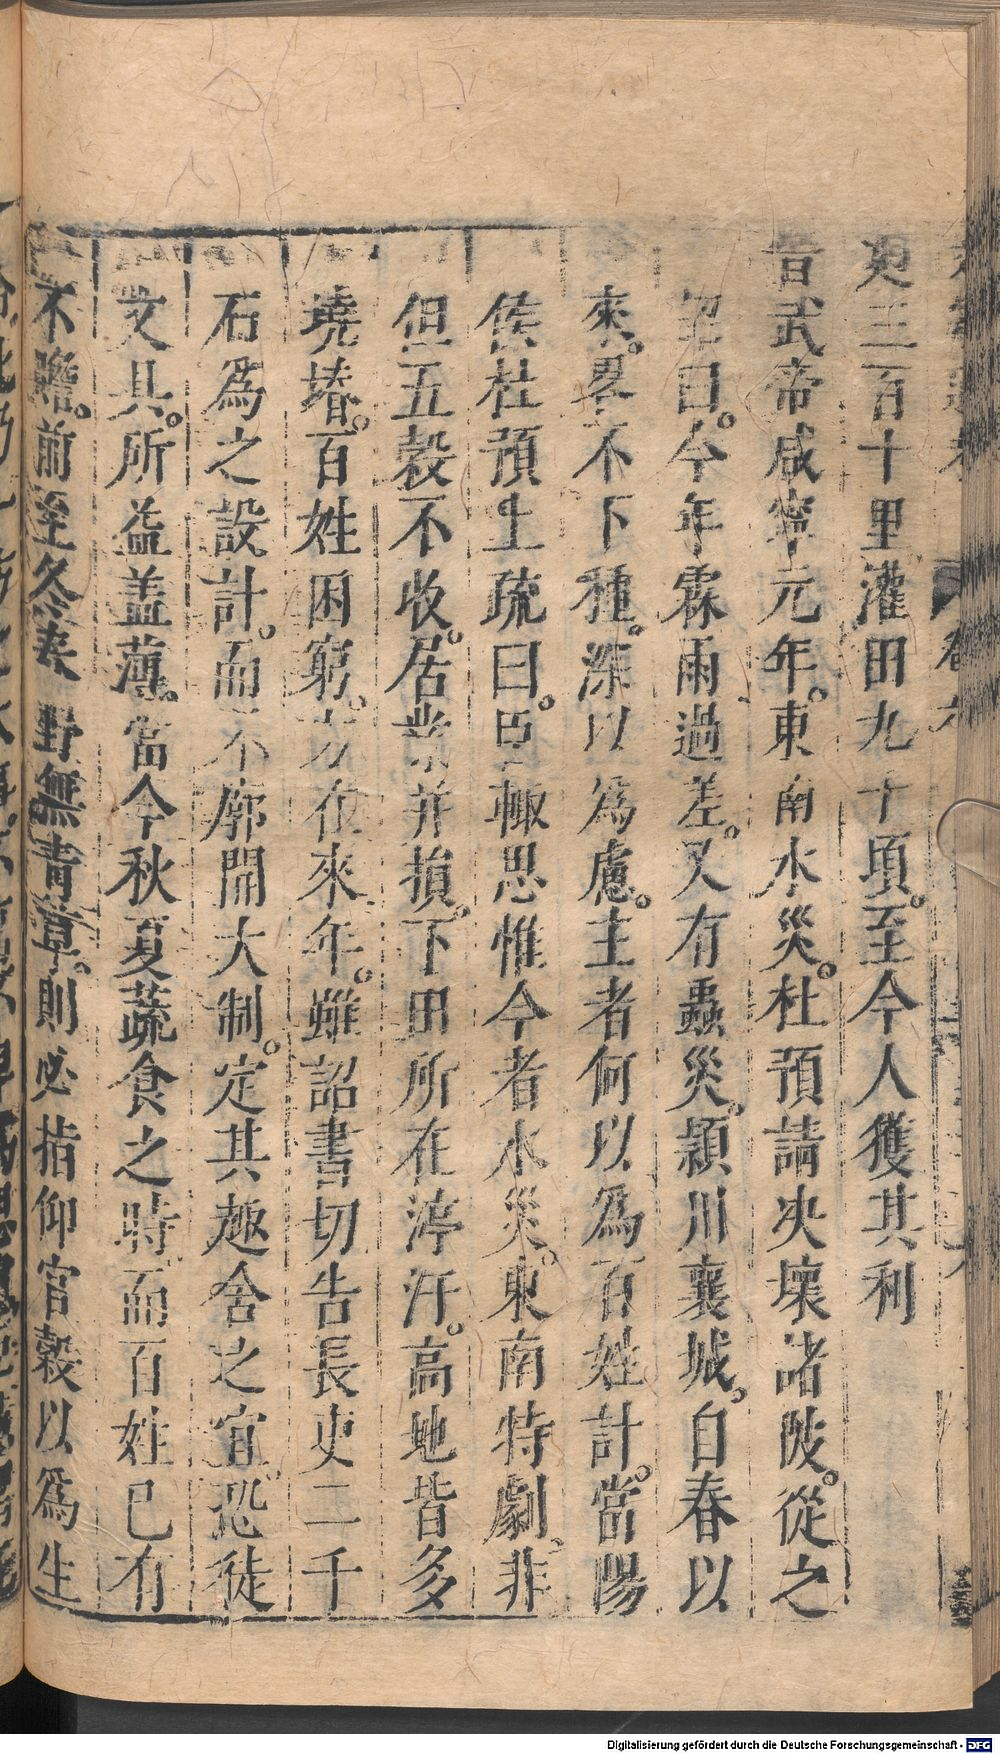 更三百十里灌田九十頃。至今人獲其利
晉武帝咸寧元年。東南水災。杜預請決壞諸陂。從之
詔曰。今年霖雨過差。又有蟲災。頴川襄城。自春以
來。畧不下種。深以爲慮。主者何以爲百姓計。當陽
侯杜預上疏曰。臣輙思惟今者水災。東南特劇。非
但五穀不收。居業并損。下田所在渟汙。高地皆多
磽塉。百姓困窮。方在來年。雖詔書切告長吏二千
石爲之設計。而不廓開大制。定其趣舍之宜。恐徒
文具。所益盖薄。當今秋夏蔬食之時。而百姓已有
不贍。前至冬春。野無青草。則必指仰官穀以爲生
Digitalisierung gefördert durch die Deutsche Forschungsgemeinschaft - DFG